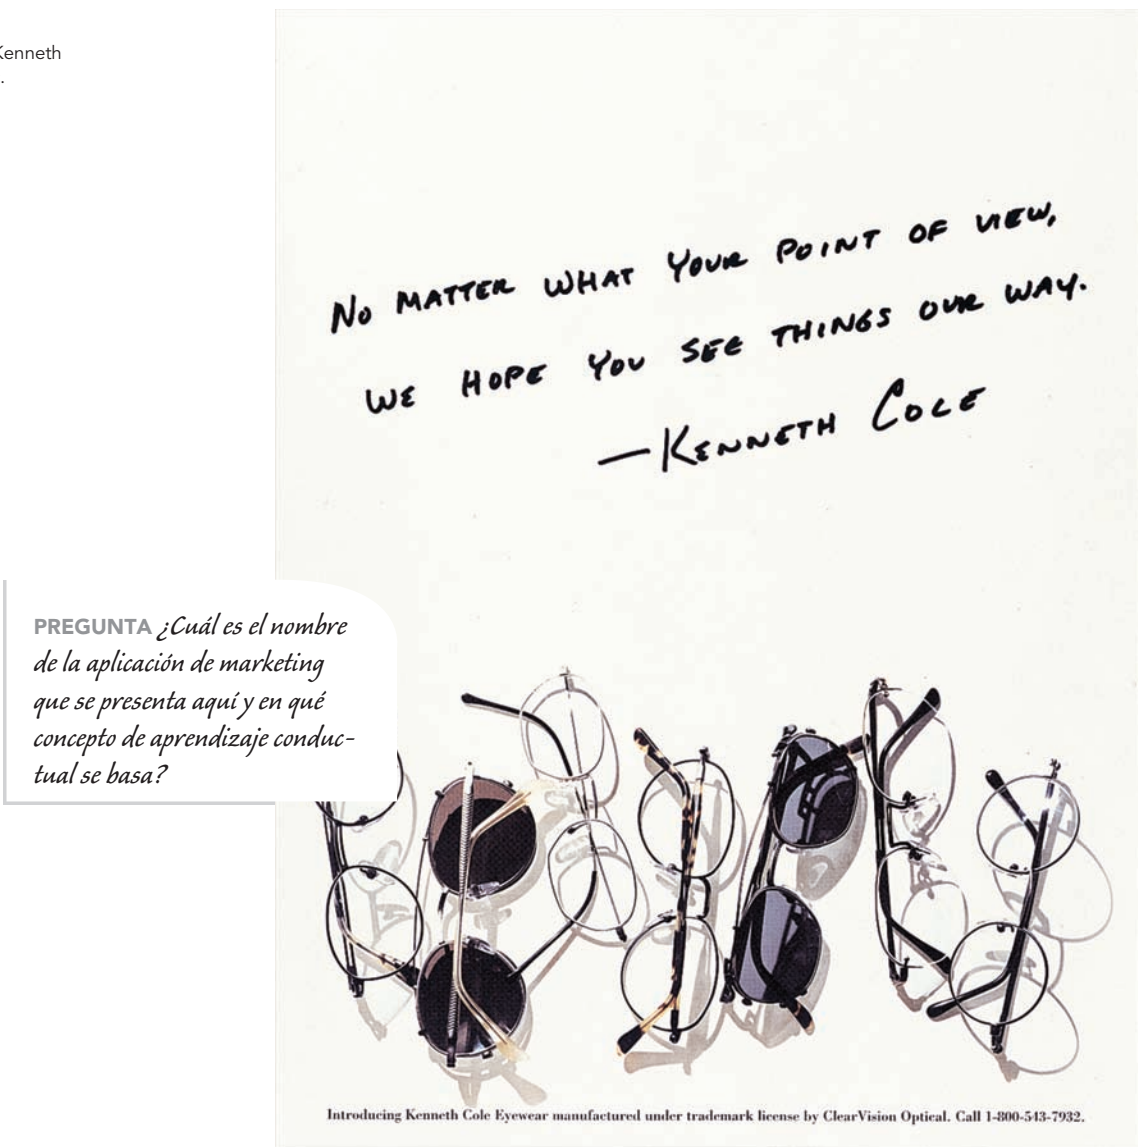 Kenneth
.
NO MATTER WHAT YOUR POINT OF VIEW,
WE HOPE YOU SEE THINGS OUR WAY.
—KENNETH COLE
PREGUNTA ¿Cuál es el nombre
de la aplicación de marketing
que se presenta aquí y en qué
concepto de aprendizaje conduc-
tual se basa?
Introducing Kenneth Cole Eyewear manufactured under trademark license by ClearVision Optical. Call 1-800-543-7932.